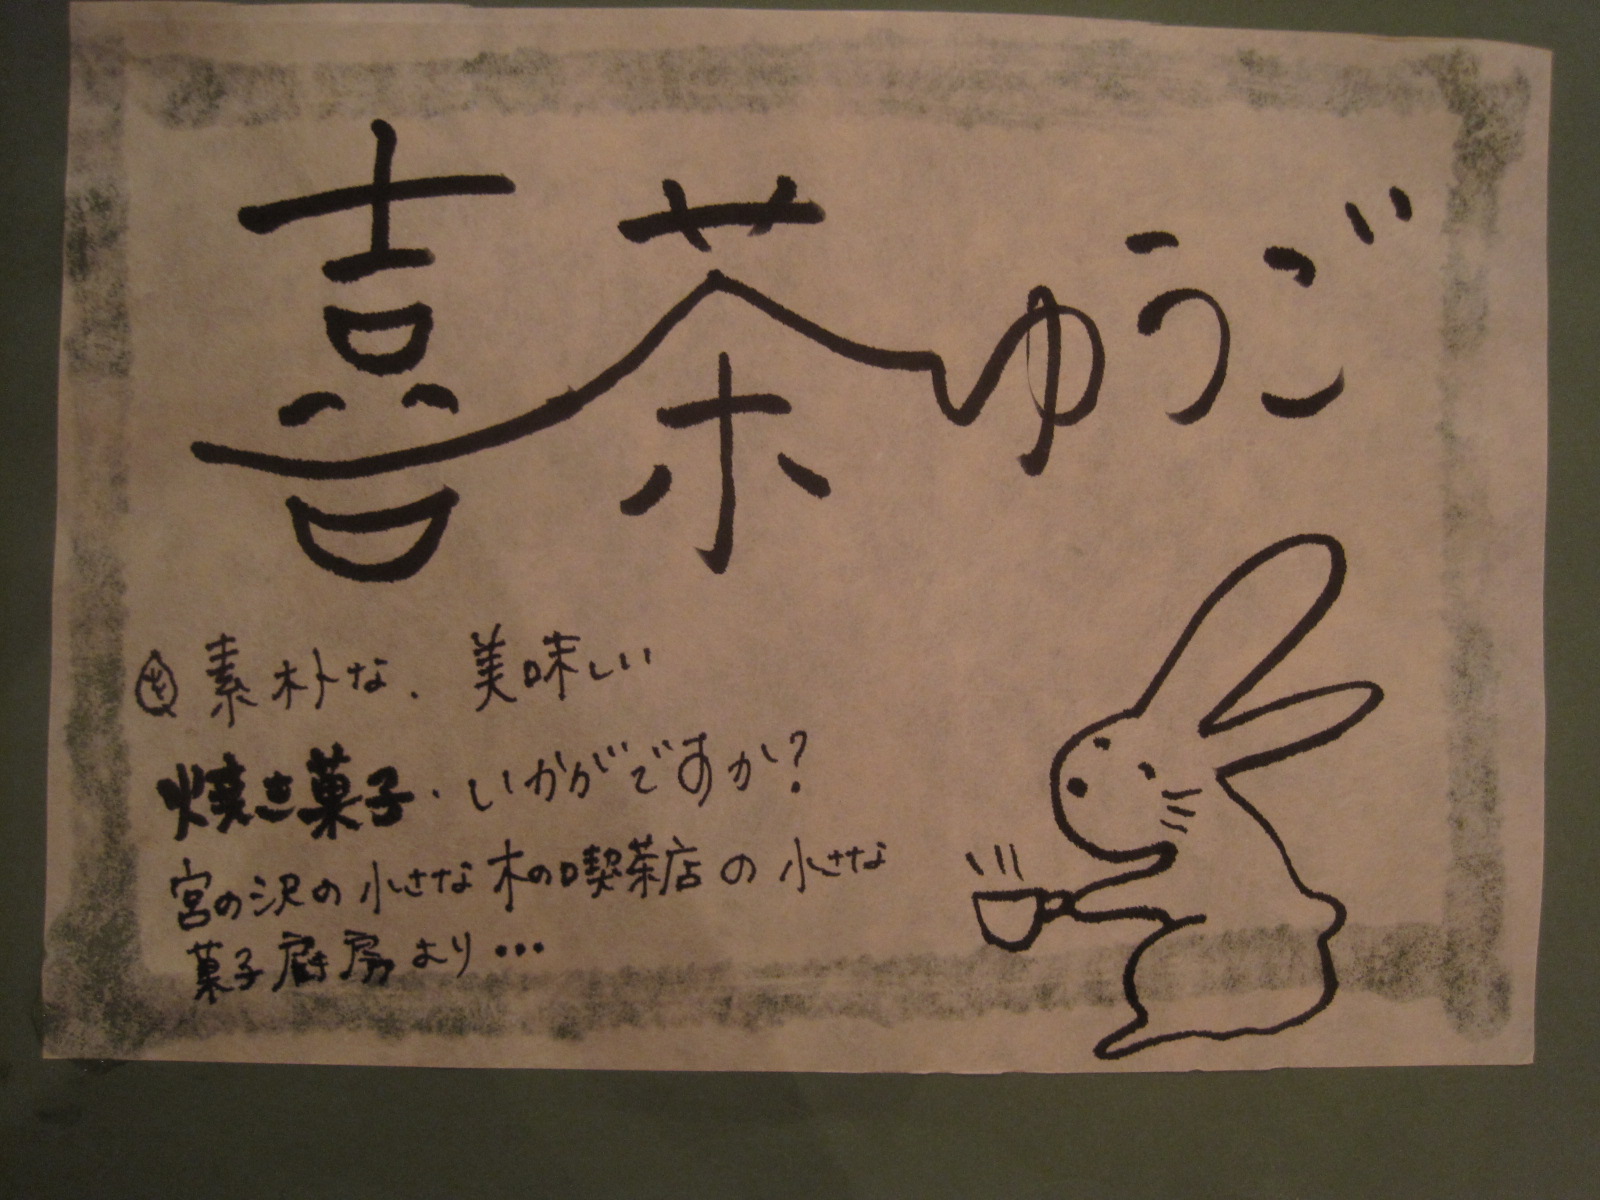 喜茶ゆうご
素朴な、美味しい
焼き菓子・いかがですか?
宮の沢の小さな木の喫茶店の小さな
菓子厨房より・・・